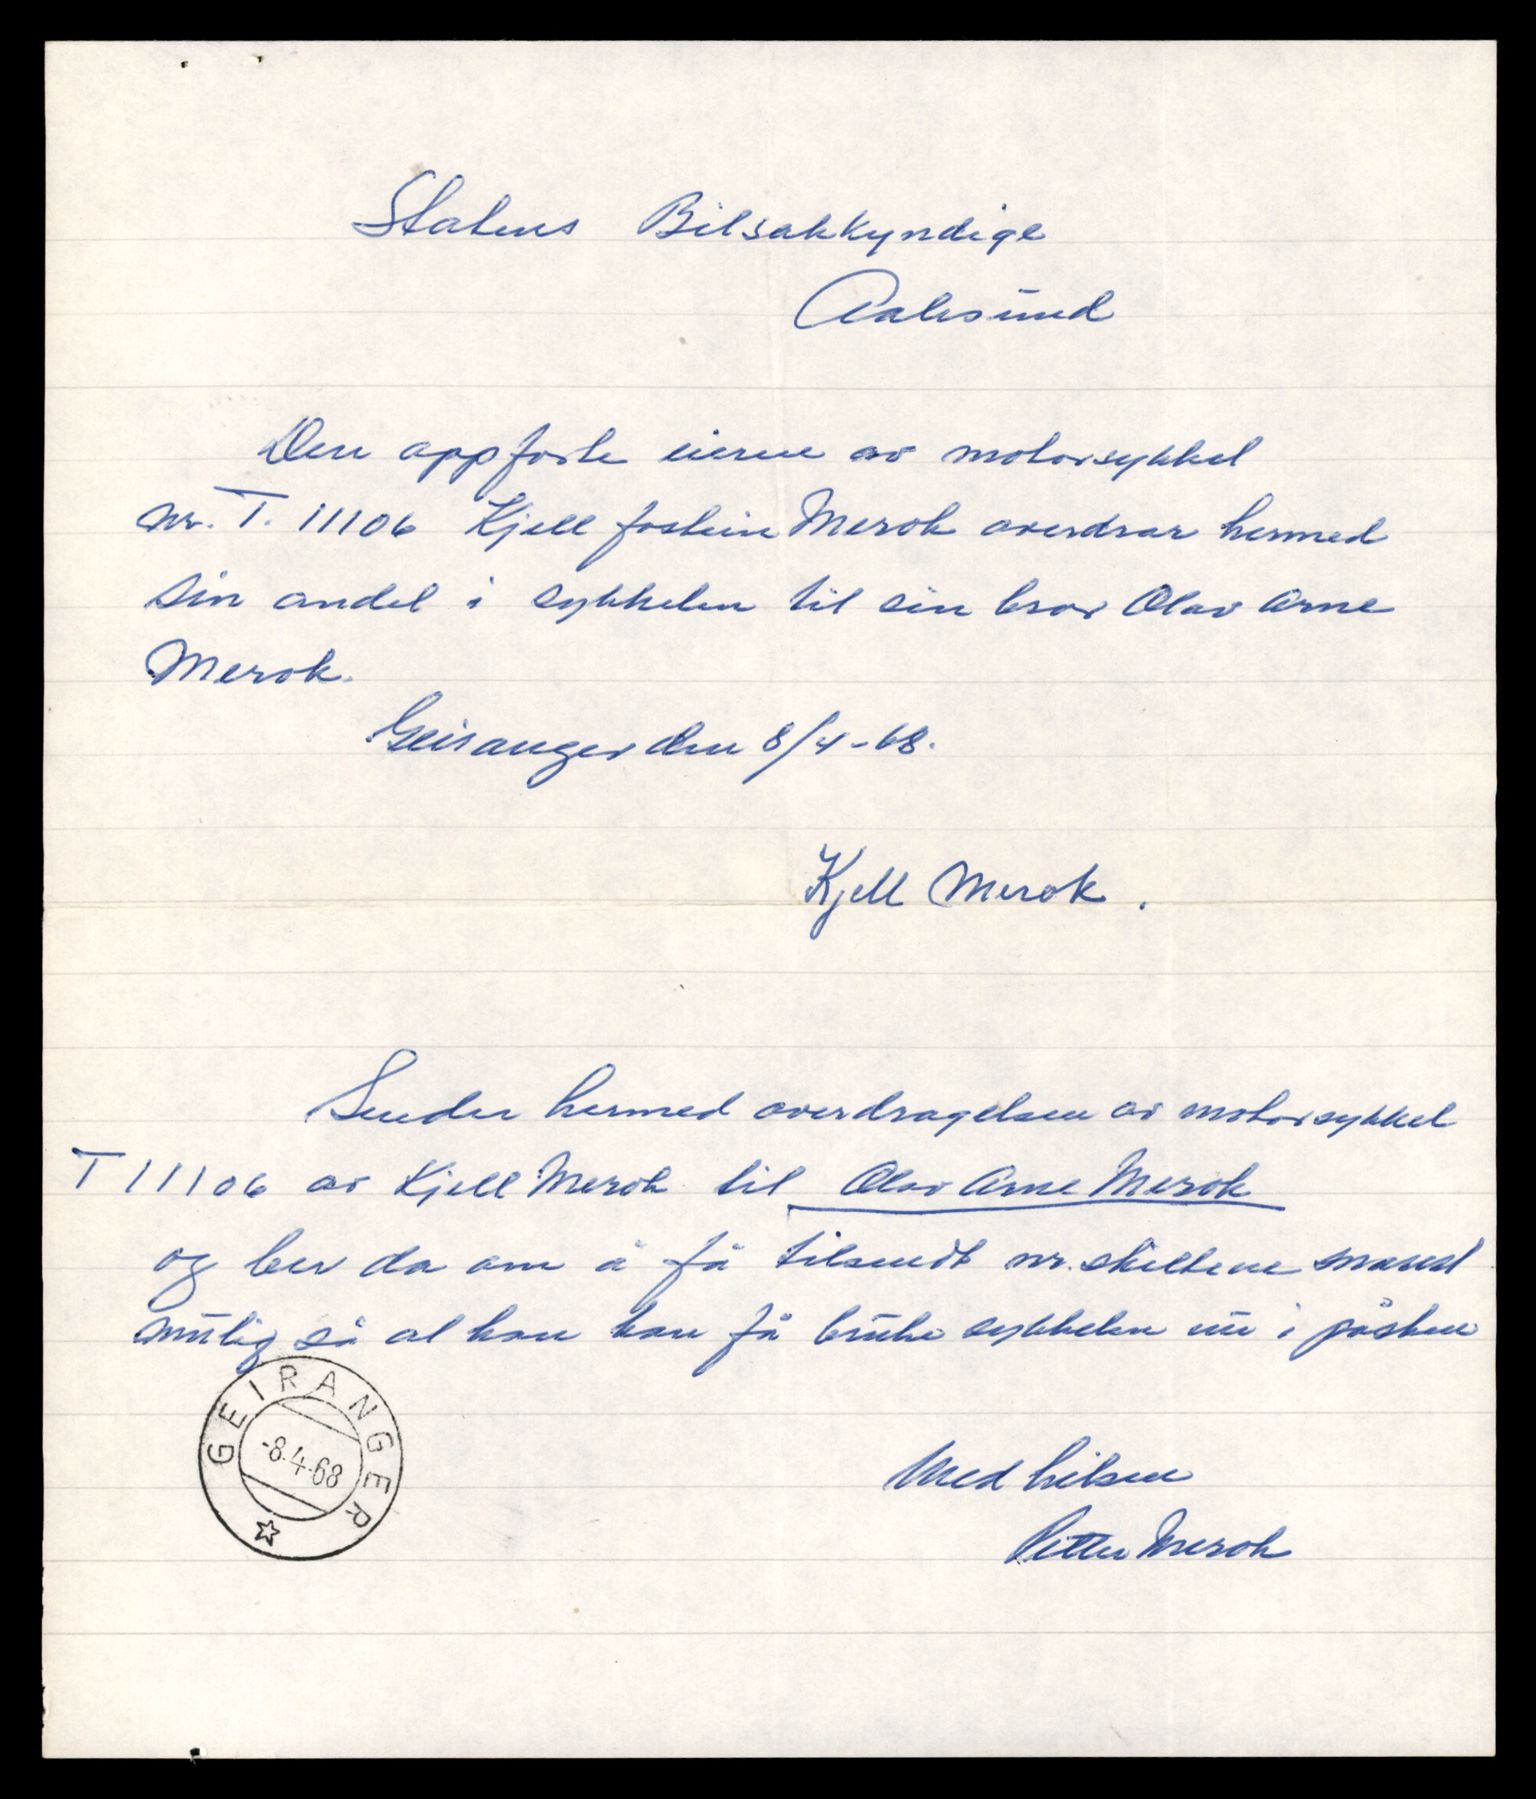 Statens Bilsakkyndige
Aalesund
Den oppførte eieren av motorsykkel
nr. T. 11106 Kjell Jostein Merok overdrar hermed
sin andel i sykkelen til sin bror Olav Arne
Merok.
Geiranger den 8/4-68.
Kjell Merok.
Sender hermed overdragelsen av motorsykkel
T 11106 av Kjell Merok til Olav Arne Merok
og ber da om å få tilsendt nr. skiltene snarest
mulig så at han kan få bruke sykkelen nu i påsken
GEIRANGER
-8.4.68
Med hilsen
Petter Merok